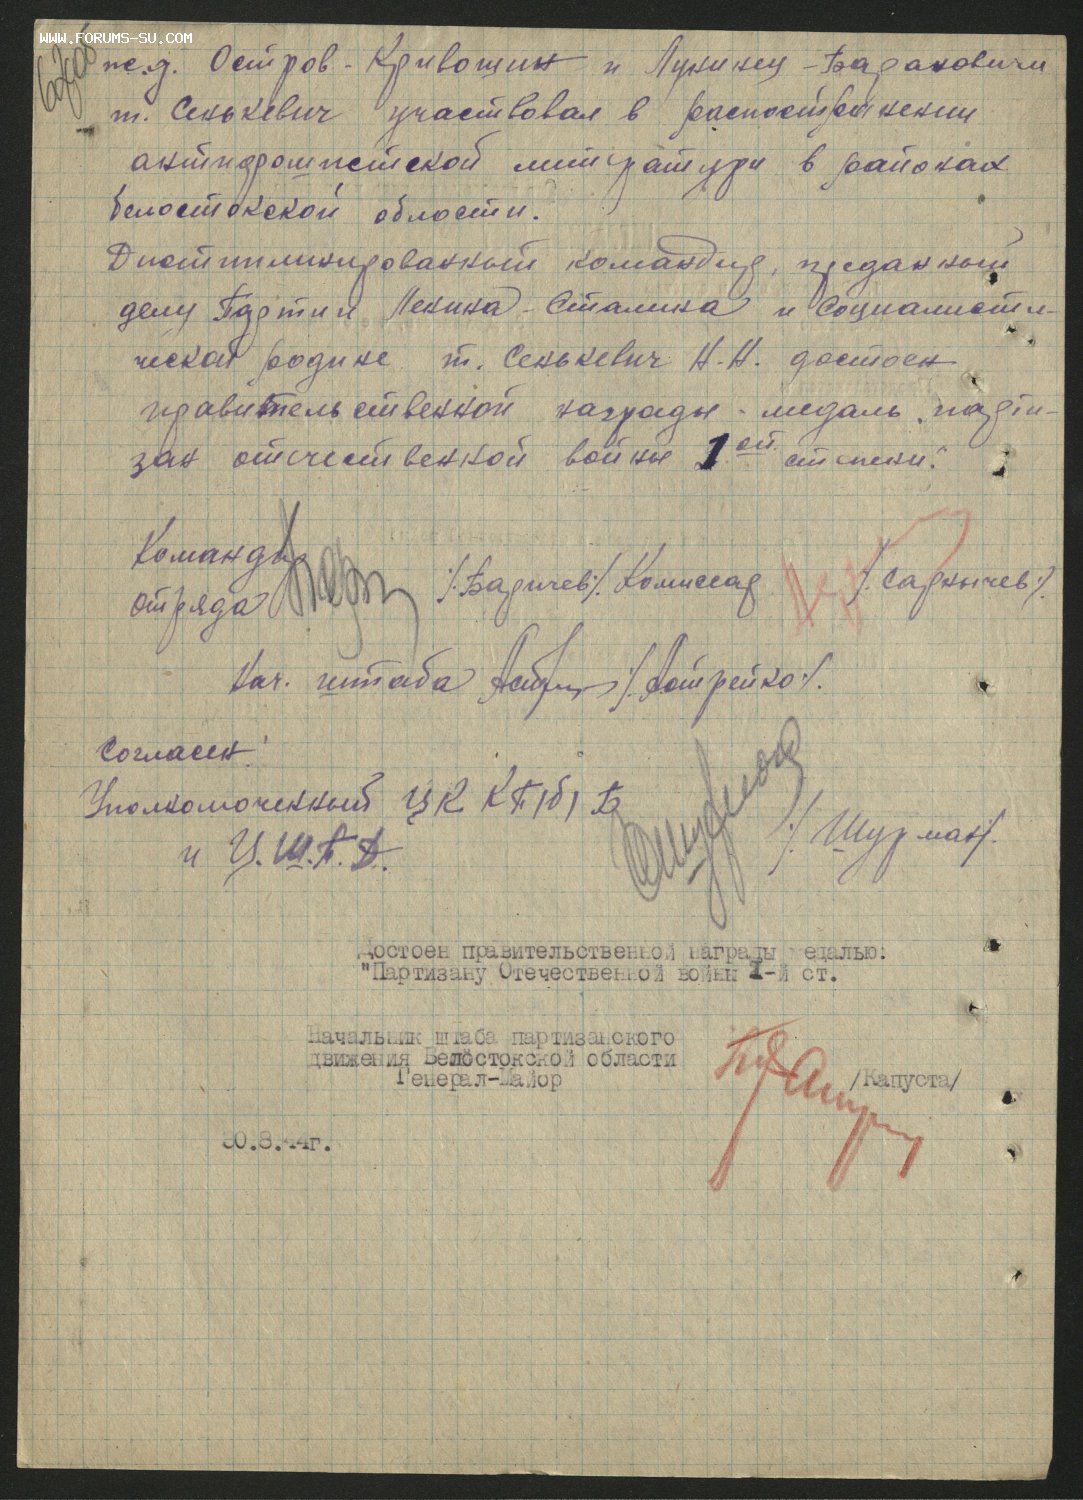 WWW.FORUMS-SU.COM
ж.д. Остров - Кривошин и Лунинец - Барановичи
т. Сенькевич участвовал в распостранении
антифошистской литературы в районах
белостокской области.
Дисциплинированный командир, преданный
делу Партии Ленина - Сталина и Социалисти-
ческой родине т. Сенькевич Н.Н. достоен
правительственной награды - медаль „парти-
зан отечественной войны 1ой степени".
Командир
отряда /Баричев/. Комиссар /Сарычев/.
Нач. штаба /Астрейко/.
Согласен!
Уполномоченный ЦК КП(б)Б
и Ц.Ш.П.Д. /Шурман/.
Достоен правительственной награды медалью:
"Партизану Отечественной войны I-й ст.
Начальник штаба партизанского
движения Белостокской области
Генерал-Майор /Капуста/
30.8.44г.